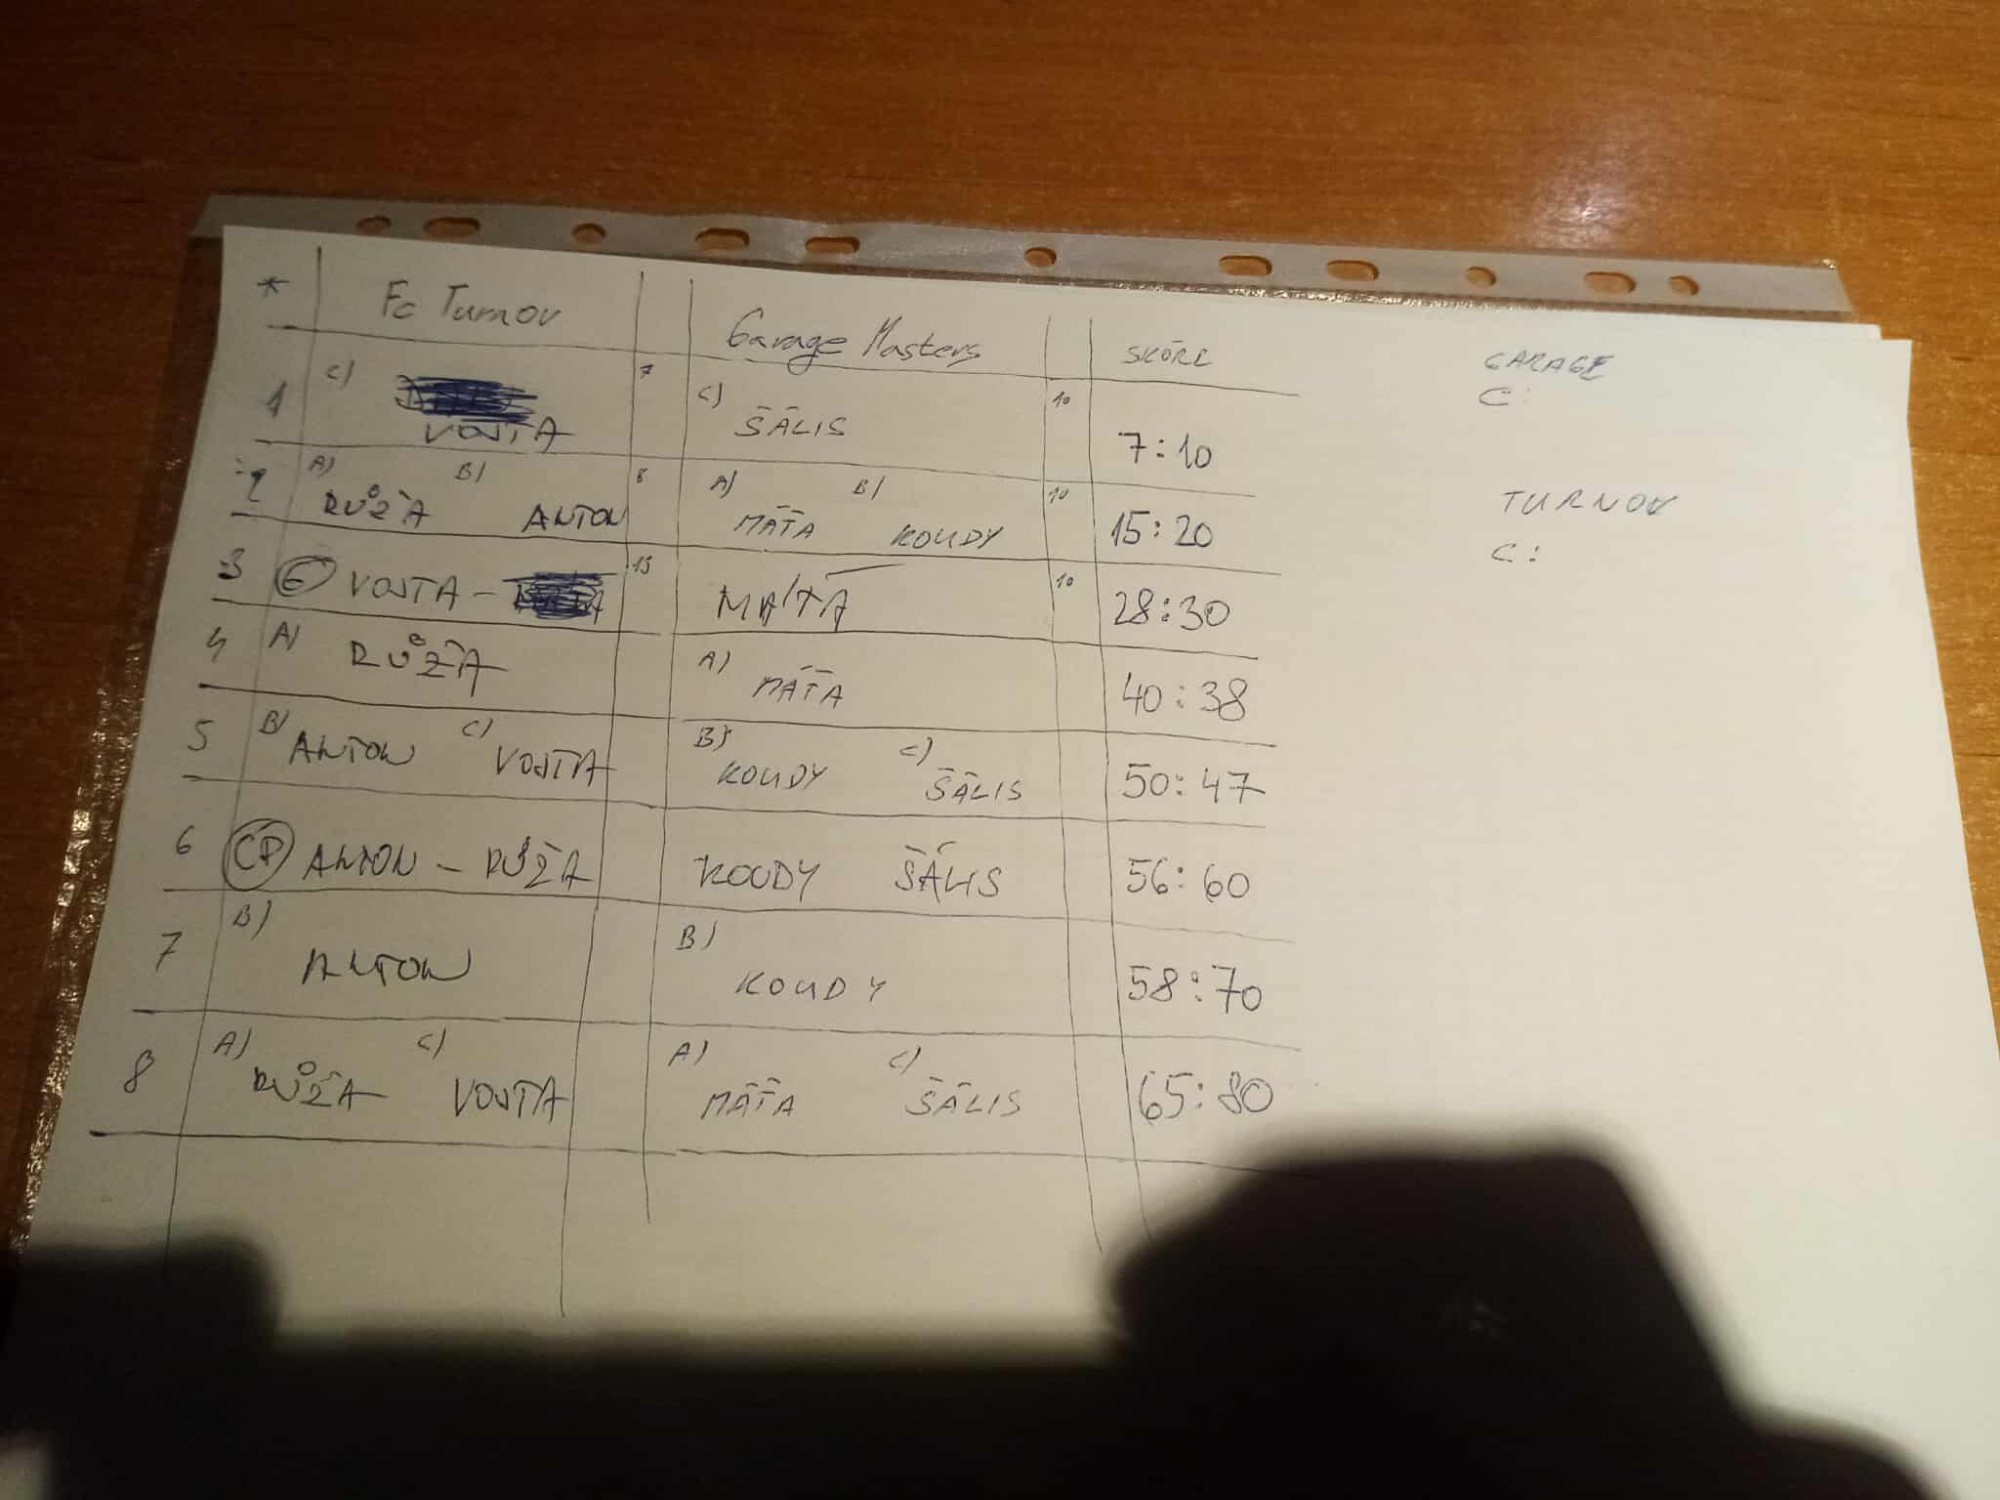 * Fc Turnov Garage Masters SKÓRE GARAGE
C:
1 C) VOJTA 7 C) ŠÁLIS 10 7:10
2 A) RŮŽA B) ANTON 8 A) MÁŤA B) KOUDY 10 15:20
TURNOV
C:
3 G VOJTA - 13 MÁŤA 10 28:30
4 A) RŮŽA A) MÁŤA 40:38
5 B) ANTON C) VOJTA B) KOUDY C) ŠÁLIS 50:47
6 CP ANTON - RŮŽA KOUDY ŠÁLIS 56:60
7 B) ANTON B) KOUDY 58:70
8 A) RŮŽA C) VOJTA A) MÁŤA C) ŠÁLIS 65:80